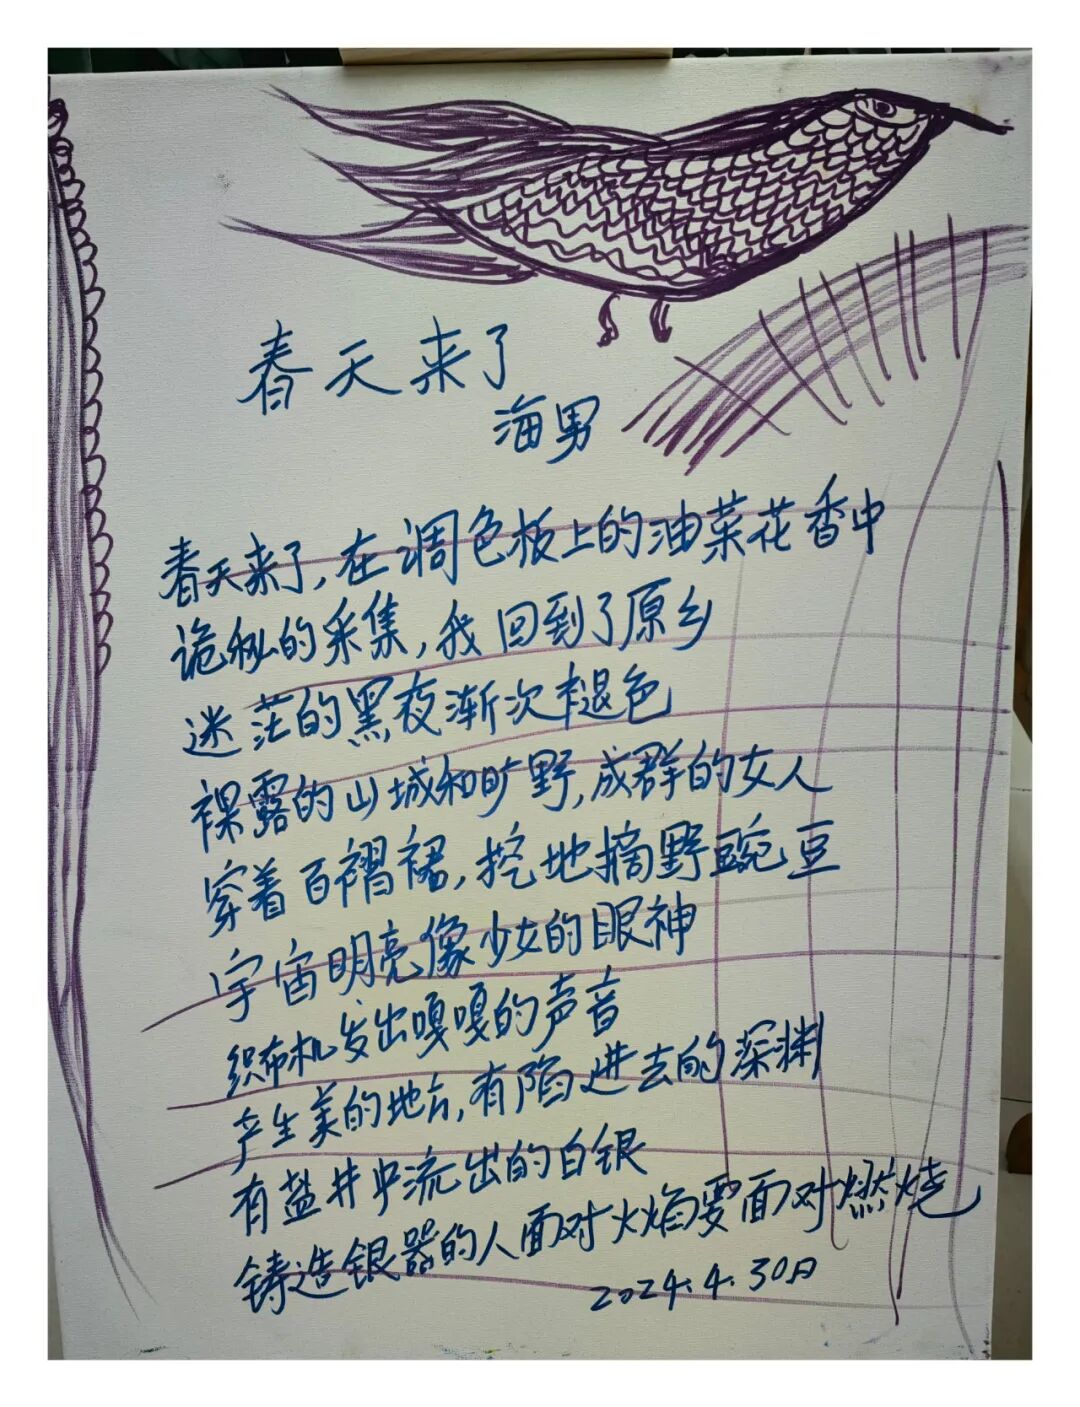 春天来了
海男
春天来了，在调色板上的油菜花香中
诡秘的采集，我回到了原乡
迷茫的黑夜渐次褪色
裸露的山城和旷野，成群的女人
穿着百褶裙，挖地摘野豌豆
宇宙明亮像少女的眼神
织布机发出嘎嘎的声音
产生美的地方，有陷进去的深渊
有盐井中流出的白银
铸造银器的人面对火焰要面对燃烧
2024.4.30日